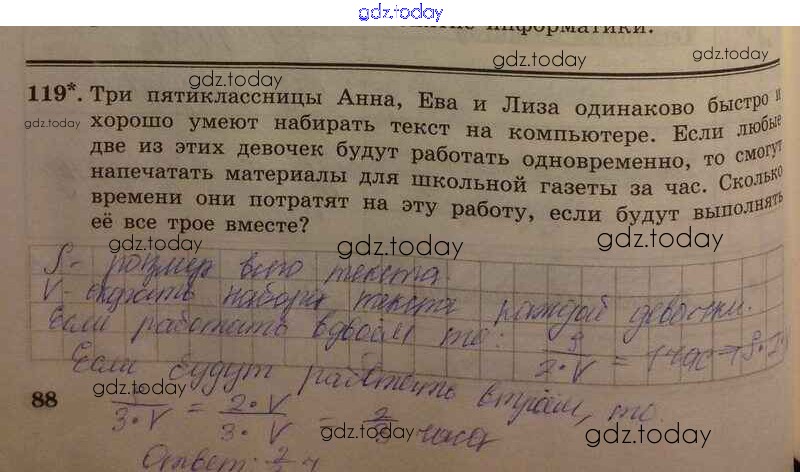 gdz.today
информатики.
gdz.today gdz.today
119*. Три пятиклассницы Анна, Ева и Лиза одинаково быстро и
gdz.today хорошо умеют набирать текст на компьютере. Если любые
две из этих девочек будут работать одновременно, то смогут
напечатать материалы для школьной газеты за час. Сколько
времени они потратят на эту работу, если будут выполнять
её все трое вместе?
gdz.today gdz.today gdz.today
S - размер всего текста.
V - скорость набора текста каждой девочки.
Если работать вдвоем то: S/2·V = 1 час
Если будут работать втроём, то
88 gdz.today gdz.today
S/3·V = 2·V/3·V = 2/3 часа
gdz.today gdz.today
Ответ: 2/3 ч